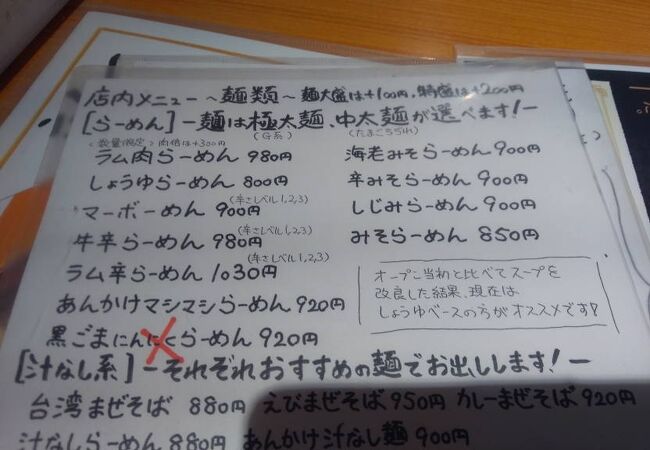 店内メニュー 〜麺類〜 麺大盛は+100円、特盛は+200円
[らーめん] ー麺は極太麺、中太麺が選べます!ー
(G系) (たまごちぢれ)
<数量限定> 肉倍は+300円
ラム肉らーめん 980円
しょうゆらーめん 800円
(辛さレベル1,2,3)
マーボーめん 900円
(辛さレベル1,2,3)
牛辛らーめん 980円
(辛さレベル1,2,3)
ラム辛らーめん 1030円
あんかけマシマシらーめん 920円
黒ごまにんにくらーめん 920円
海老みそらーめん 900円
辛みそらーめん 900円
しじみらーめん 900円
みそらーめん 850円
オープン当初と比べてスープを
改良した結果、現在は
しょうゆベースの方がオススメです!
[汁なし系] ーそれぞれおすすめの麺でお出しします!ー
台湾まぜそば 880円 えびまぜそば 950円 カレーまぜそば 920円
汁なしらーめん 880円 あんかけ汁なし麺 900円